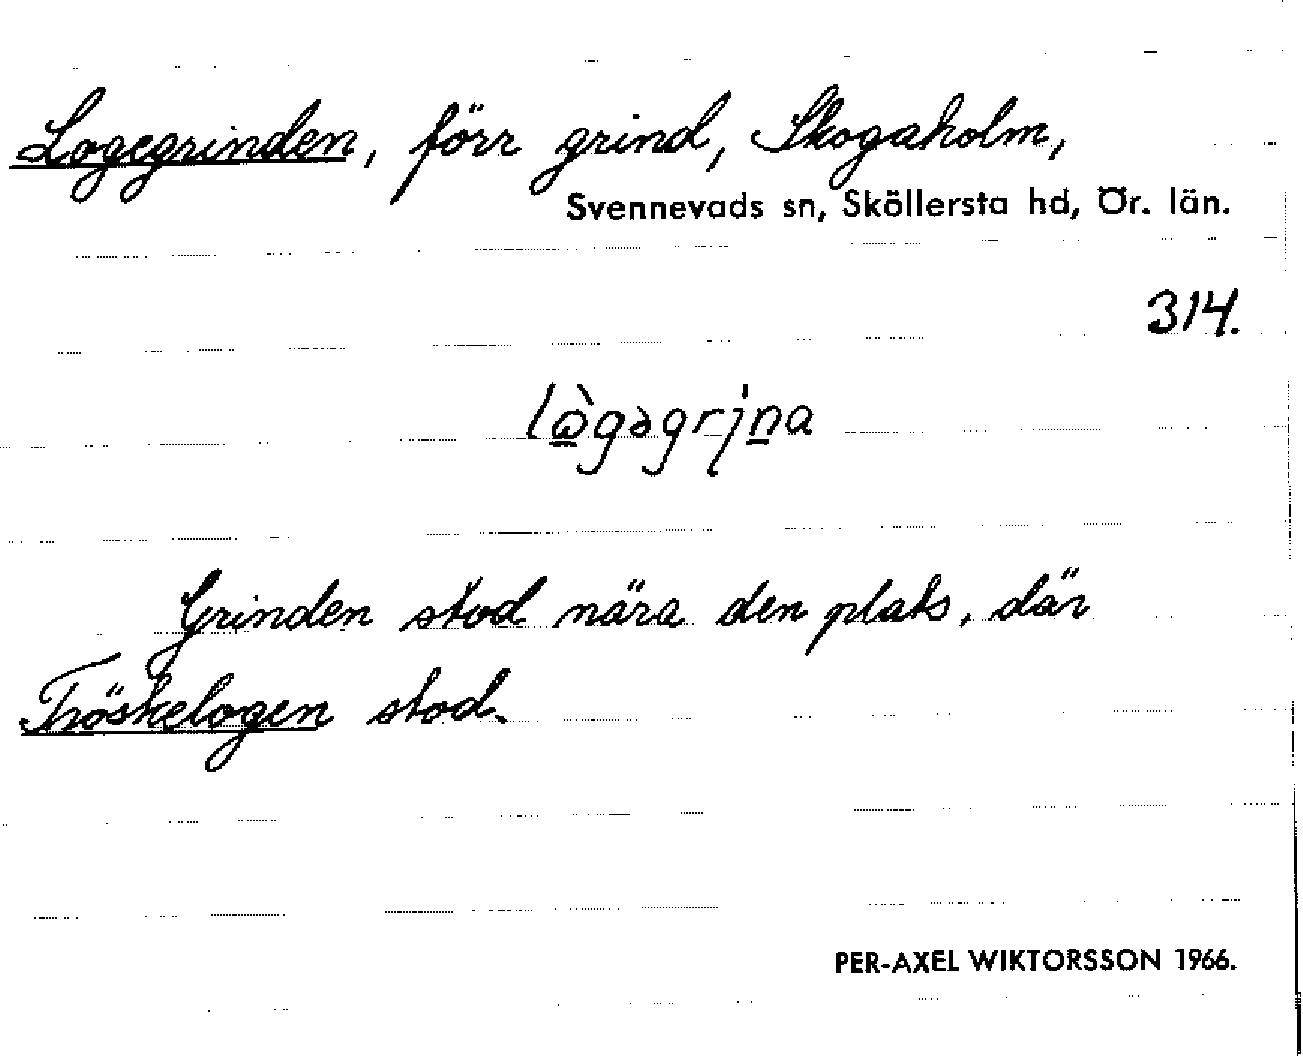 Logegrinden, förr grind, Skogaholm,
Svennevads sn, Sköllersta hd, Ör. län.
314.
lò̱gəgrịṉa
Grinden stod nära den plats, där
Tröskelogen stod.
PER-AXEL WIKTORSSON 1966.